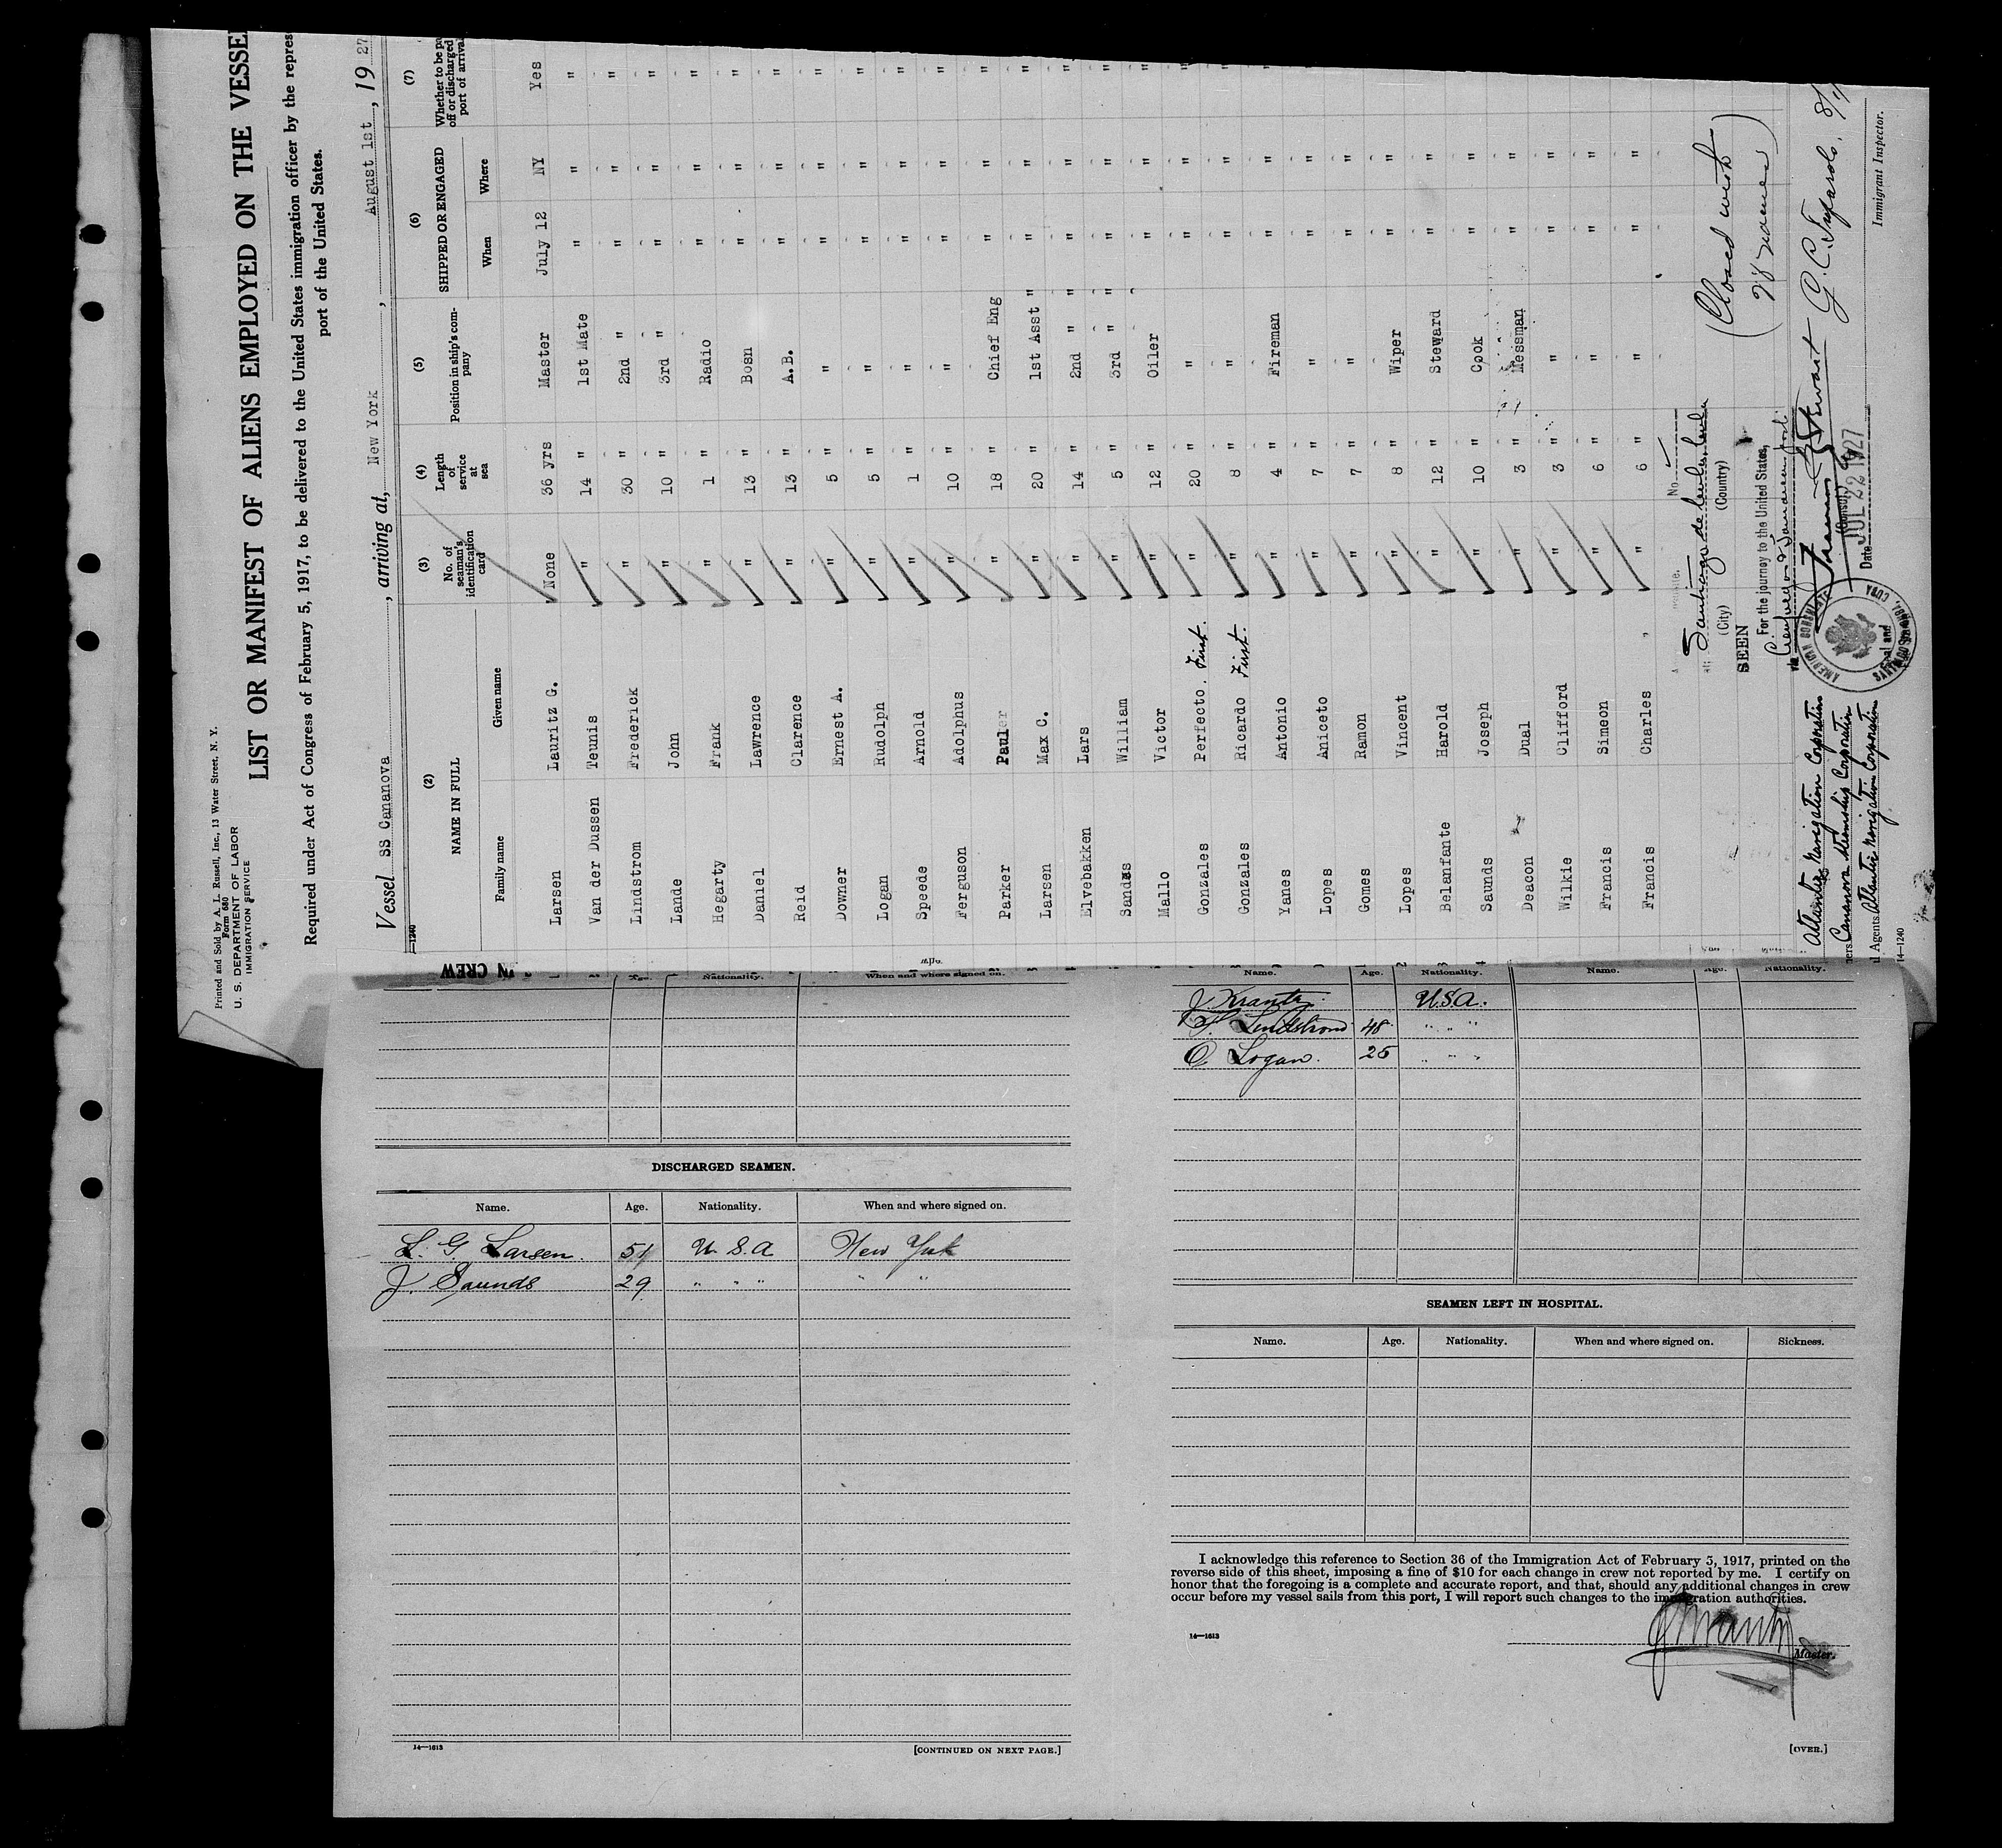 Printed and Sold by A. L. Russell, Inc., 13 Water Street, N. Y.
Form 680
U. S. DEPARTMENT OF LABOR
IMMIGRATION SERVICE
LIST OR MANIFEST OF ALIENS EMPLOYED ON THE VESSE
Required under Act of Congress of February 5, 1917, to be delivered to the United States immigration officer by the repres
port of the United States.
Vessel SS Cananova, arriving at, New York, August 1st, 1927
(2) (3) (4) (5) (6) (7)
NAME IN FULL No. of seaman's identification card Length of service at sea Position in ship's company SHIPPED OR ENGAGED Whether to be pa off or discharged port of arrival
Family name Given name When Where
Larsen Lauritz G. None 36 yrs Master July 12 NY Yes
Van der Dussen Teunis " 14 " 1st Mate " " "
Lindstrom Frederick " 30 " 2nd " " " "
Lande John " 10 " 3rd " " " "
Hegarty Frank " 1 " Radio " " "
Daniel Lawrence " 13 " Bosn " " "
Reid Clarence " 13 " A.B. " " "
Downer Ernest A. " 5 " " " " "
Logan Rudolph " 5 " " " " "
Speede Arnold " 1 " " " " "
Ferguson Adolphus " 10 " " " " "
Parker Paul " 18 " Chief Eng " " "
Larsen Max C. " 20 " 1st Asst " " " "
Elvebakken Lars " 14 " 2nd " " " " "
Sandes William " 5 " 3rd " " " " "
Mallo Victor " 12 " Oiler " " "
Gonzales Perfecto. First. " 20 " " " " "
Gonzales Ricardo First. " 8 " " " " "
Yanes Antonio " 4 " Fireman " " "
Lopes Aniceto " 7 " " " "
Gomes Ramon " 7 " " " "
Lopes Vincent " 8 " Wiper " "
Belanfante Harold " 12 " Steward " "
Saunds Joseph " 10 " Cook " "
Deacon Dual " 3 " Messman " "
Wilkie Clifford " 3 " " " "
Francis Simeon " 6 " " " "
Francis Charles " 6 " " " "
No.
Santiago de Cuba, Cuba
(City) (Country)
SEEN
For the journey to the United States,
via
(Closed with
28 names)
Date JUL 22 1927
AMERICAN CONSULATE
SANTIAGO DE CUBA, CUBA
Atlantic Navigation Corporation
ners Cananova Steamship Corporation
l Agents Atlantic Navigation Corporation
Immigrant Inspector.
14—1240
N CREW
Age. Nationality. When and where signed on.
Name. Age. Nationality. Name. Age. Nationality.
J Krantz. U.S.A.
F. Lindstrom 48 " " "
O. Logan. 25 " " "
DISCHARGED SEAMEN.
Name. Age. Nationality. When and where signed on.
L. G. Larsen. 51 U.S.A New York
J. Saunds 29 " " " " "
14—1613
[CONTINUED ON NEXT PAGE.]
SEAMEN LEFT IN HOSPITAL.
Name. Age. Nationality. When and where signed on. Sickness.
I acknowledge this reference to Section 36 of the Immigration Act of February 5, 1917, printed on the
reverse side of this sheet, imposing a fine of $10 for each change in crew not reported by me. I certify on
honor that the foregoing is a complete and accurate report, and that, should any additional changes in crew
occur before my vessel sails from this port, I will report such changes to the immigration authorities.
14—1613
J Krantz
Master.
[OVER.]